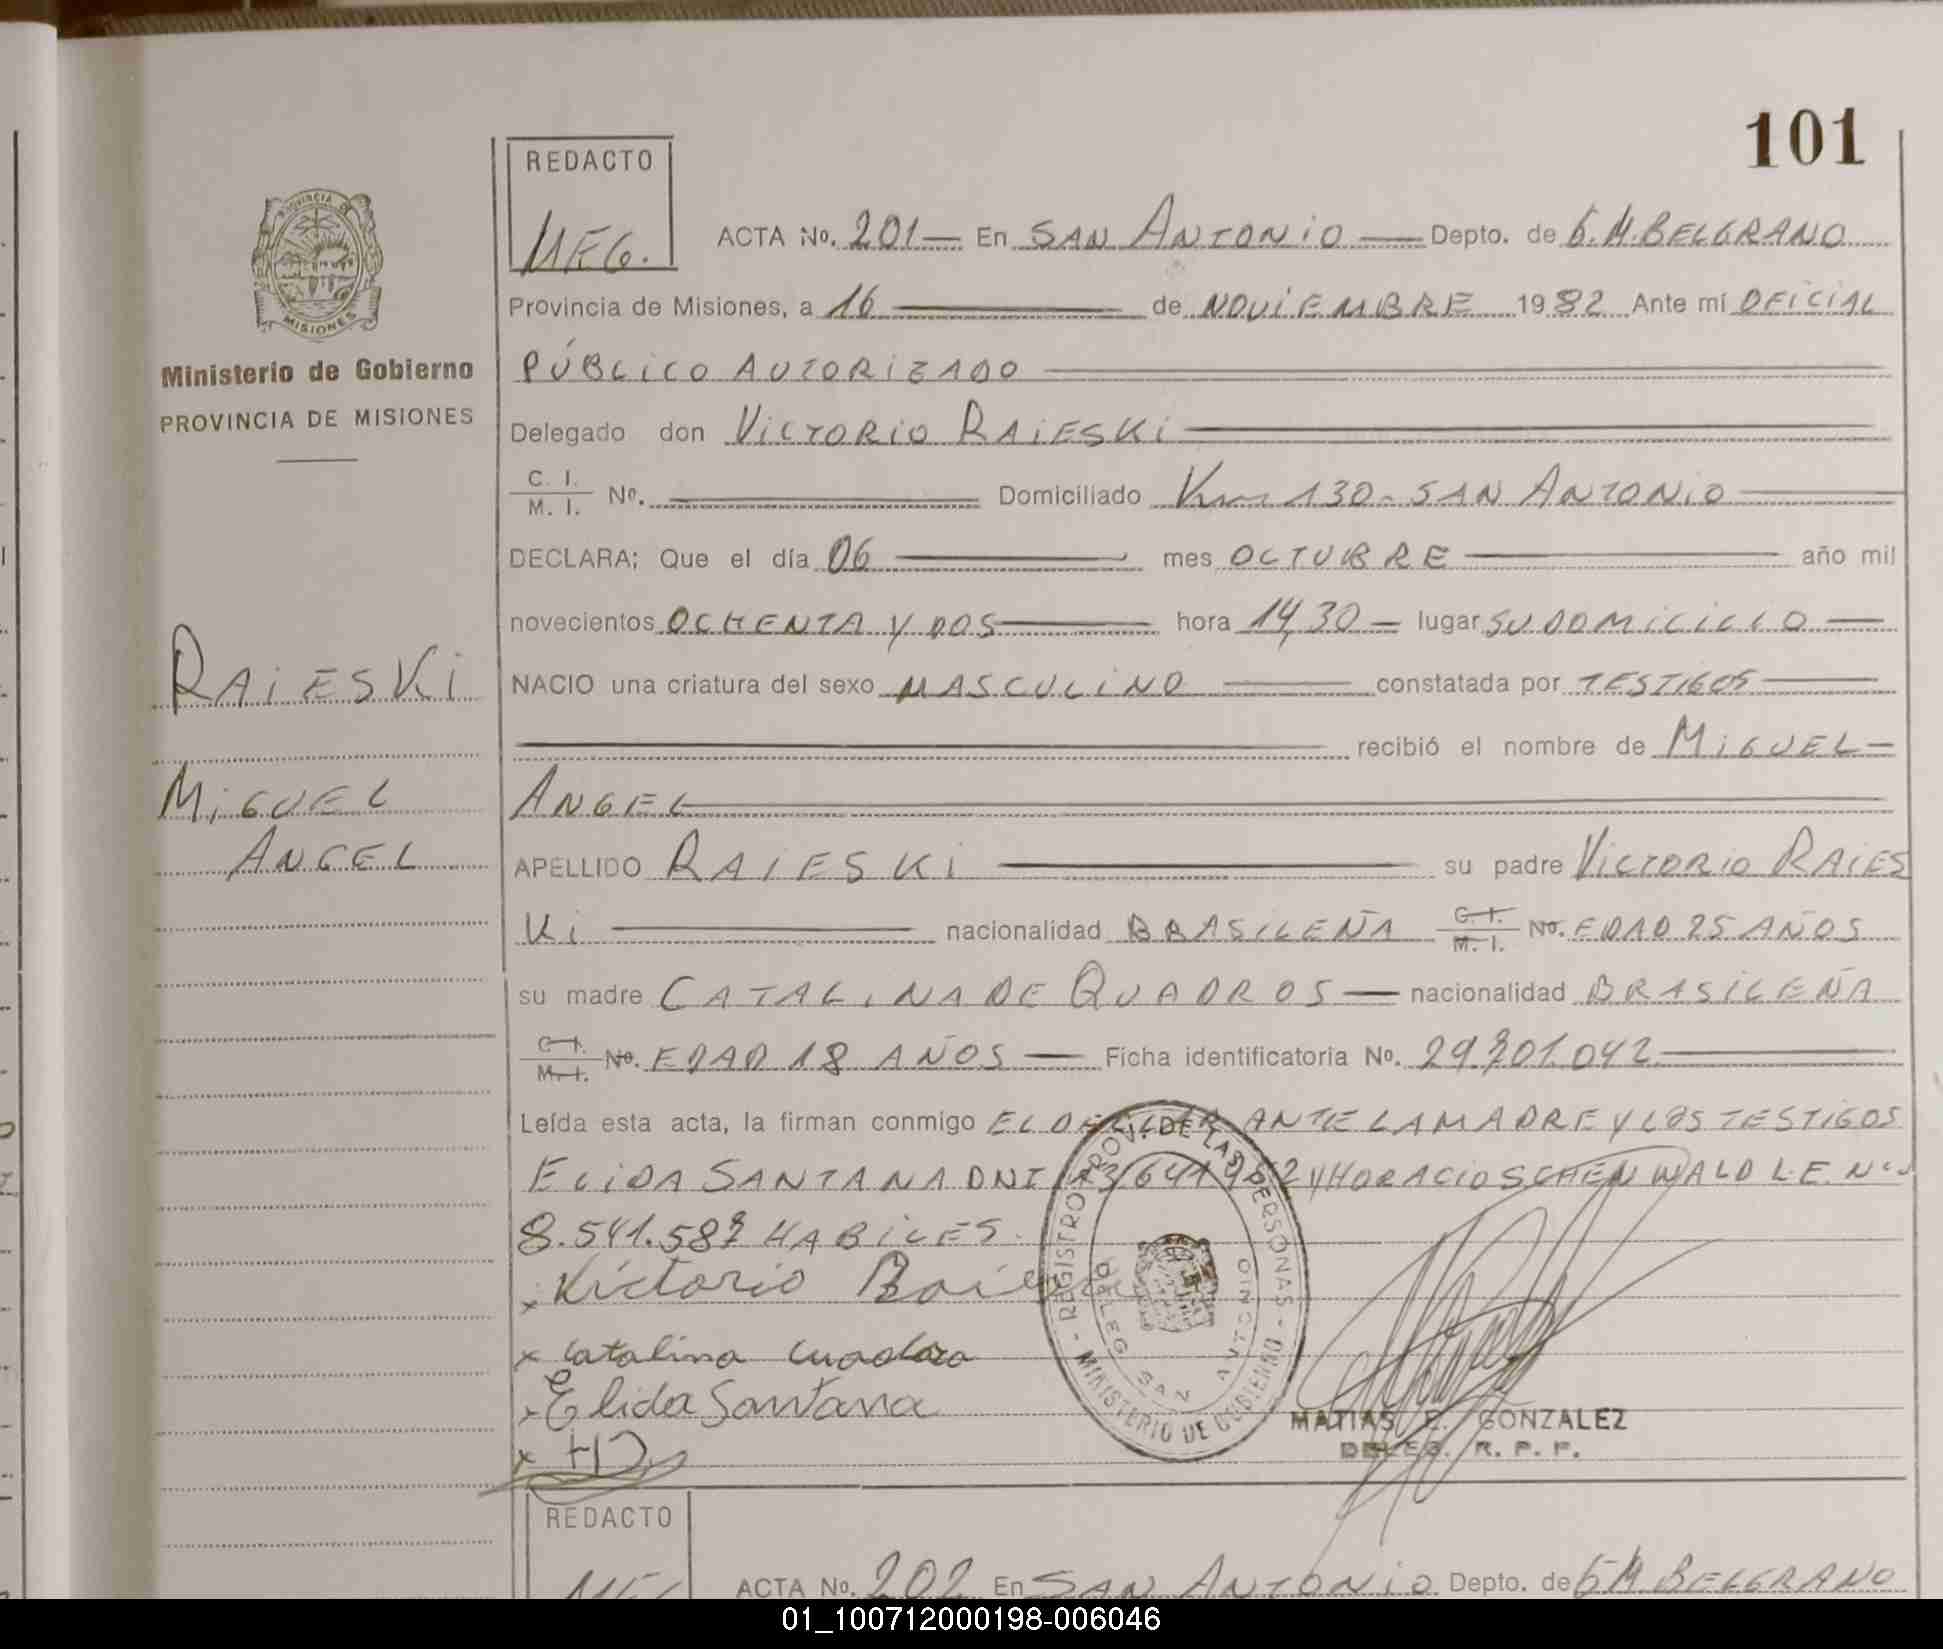 101
REDACTO
MEG.
ACTA No. 201 En SAN ANTONIO Depto. de G.M.BELGRANO
Provincia de Misiones, a 16 de NOVIEMBRE 1982 Ante mí OFICIAL
PROVINCIA DE MISIONES
Ministerio de Gobierno
PROVINCIA DE MISIONES
PÚBLICO AUTORIZADO
Delegado don VICTORIO RAIESKI
C. I.
M. I. No. Domiciliado Km 130 - SAN ANTONIO
DECLARA; Que el día 06 mes OCTUBRE año mil
novecientos OCHENTA Y DOS hora 14,30 lugar SU DOMICILIO
RAIESKI
NACIO una criatura del sexo MASCULINO constatada por TESTIGOS
recibió el nombre de MIGUEL
MIGUEL
ANGEL
ANGEL
APELLIDO RAIESKI su padre VICTORIO RAIES
KI nacionalidad BRASILEÑA C. I. M. I. No. EDAD 25 AÑOS
su madre CATALINA DE QUADROS nacionalidad BRASILEÑA
C. I. M. I. No. EDAD 18 AÑOS Ficha identificatoria No. 29.701.042
Leída esta acta, la firman conmigo EL DECLAR ANTE LA MADRE Y LOS TESTIGOS
ELIDA SANTANA DNI Y HORACIO SCHENWALD L.E. No
8.541.587 HABILES.
x Victorio
x Catalina Cuadro
x Elida Santana
x
REGISTRO PROV. DE LAS PERSONAS - MINISTERIO DE GOBIERNO -
DELEG. SAN ANTONIO
MATIAS E. GONZALEZ
DELEG. R. P. P.
REDACTO
ACTA No. 202 En SAN ANTONIO Depto. de G.M.BELGRANO
01_100712000198-006046